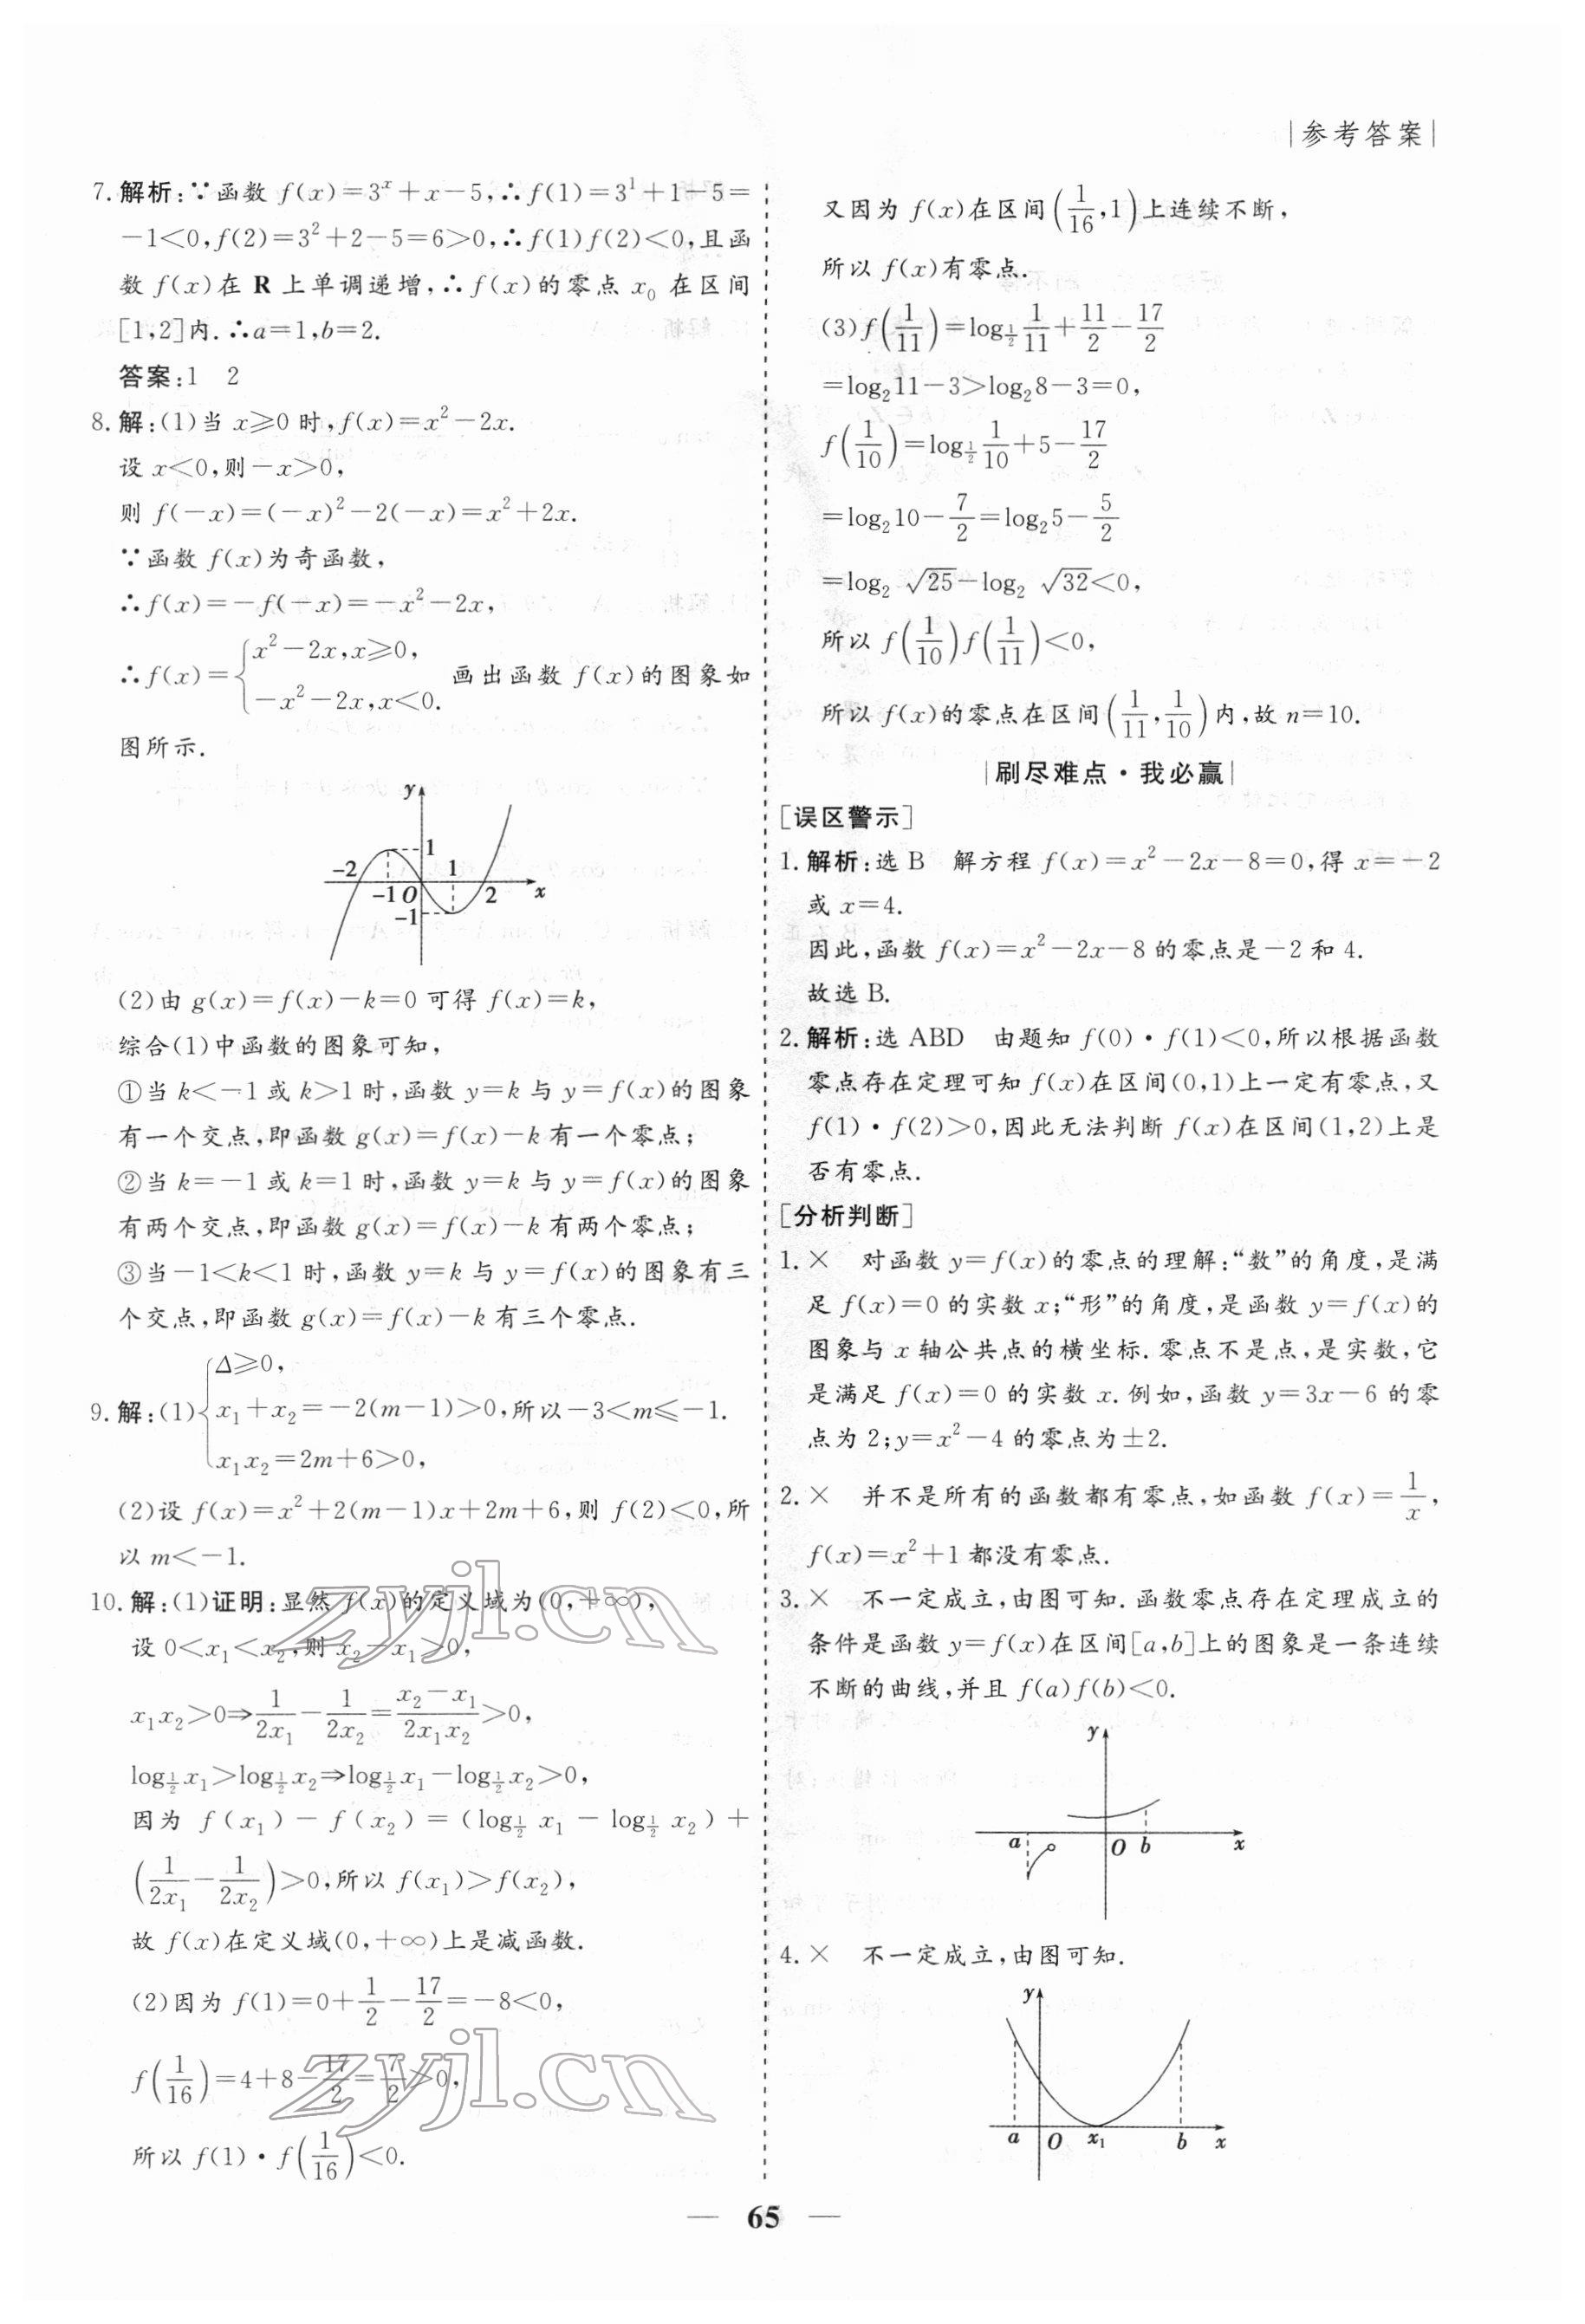 |参考答案|
7.解析:∵函数 f(x)=3^x+x-5,∴f(1)=3^1+1-5=
-1<0,f(2)=3^2+2-5=6>0,∴f(1)f(2)<0,且函
数 f(x)在 R 上单调递增,∴f(x)的零点 x_0 在区间
[1,2]内.∴a=1,b=2.
答案:1 2
8.解:(1)当 x⩾0 时,f(x)=x^2-2x.
设 x<0,则-x>0,
则 f(-x)=(-x)^2-2(-x)=x^2+2x.
∵函数 f(x)为奇函数,
∴f(x)=-f(-x)=-x^2-2x,
∴f(x)={x^2-2x,x⩾0, -x^2-2x,x<0. 画出函数 f(x)的图象如
图所示.
y
1
-2 1
-1 O 2 x
-1
(2)由 g(x)=f(x)-k=0 可得 f(x)=k,
综合(1)中函数的图象可知,
①当 k<-1 或 k>1 时,函数 y=k 与 y=f(x)的图象
有一个交点,即函数 g(x)=f(x)-k 有一个零点;
②当 k=-1 或 k=1 时,函数 y=k 与 y=f(x)的图象
有两个交点,即函数 g(x)=f(x)-k 有两个零点;
③当-1<k<1 时,函数 y=k 与 y=f(x)的图象有三
个交点,即函数 g(x)=f(x)-k 有三个零点.
9.解:(1){Δ⩾0, x_1+x_2=-2(m-1)>0, x_1x_2=2m+6>0, 所以-3<m⩽-1.
(2)设 f(x)=x^2+2(m-1)x+2m+6,则 f(2)<0,所
以 m<-1.
10.解:(1)证明:显然 f(x)的定义域为(0,+∞),
设 0<x_1<x_2,则 x_2-x_1>0,
x_1x_2>0⇒1/(2x_1)-1/(2x_2)=(x_2-x_1)/(2x_1x_2)>0,
log_{1/2}x_1>log_{1/2}x_2⇒log_{1/2}x_1-log_{1/2}x_2>0,
因为 f(x_1)-f(x_2)=(log_{1/2}x_1-log_{1/2}x_2)+
(1/(2x_1)-1/(2x_2))>0,所以 f(x_1)>f(x_2),
故 f(x)在定义域(0,+∞)上是减函数.
(2)因为 f(1)=0+1/2-17/2=-8<0,
f(1/16)=4+8-17/2=7/2>0,
所以 f(1)·f(1/16)<0.
又因为 f(x)在区间(1/16,1)上连续不断,
所以 f(x)有零点.
(3)f(1/11)=log_{1/2}1/11+11/2-17/2
=log_2 11-3>log_2 8-3=0,
f(1/10)=log_{1/2}1/10+5-17/2
=log_2 10-7/2=log_2 5-5/2
=log_2 √25-log_2 √32<0,
所以 f(1/10)f(1/11)<0,
所以 f(x)的零点在区间(1/11,1/10)内,故 n=10.
|刷尽难点·我必赢|
[误区警示]
1.解析:选 B 解方程 f(x)=x^2-2x-8=0,得 x=-2
或 x=4.
因此,函数 f(x)=x^2-2x-8 的零点是-2 和 4.
故选 B.
2.解析:选 ABD 由题知 f(0)·f(1)<0,所以根据函数
零点存在定理可知 f(x)在区间(0,1)上一定有零点,又
f(1)·f(2)>0,因此无法判断 f(x)在区间(1,2)上是
否有零点.
[分析判断]
1.× 对函数 y=f(x)的零点的理解:“数”的角度,是满
足 f(x)=0 的实数 x;“形”的角度,是函数 y=f(x)的
图象与 x 轴公共点的横坐标.零点不是点,是实数,它
是满足 f(x)=0 的实数 x.例如,函数 y=3x-6 的零
点为 2;y=x^2-4 的零点为±2.
2.× 并不是所有的函数都有零点,如函数 f(x)=1/x,
f(x)=x^2+1 都没有零点.
3.× 不一定成立,由图可知.函数零点存在定理成立的
条件是函数 y=f(x)在区间[a,b]上的图象是一条连续
不断的曲线,并且 f(a)f(b)<0.
y
a O b x
4.× 不一定成立,由图可知.
y
a O x_1 b x
zyjl.cn
zyjl.cn
— 65 —